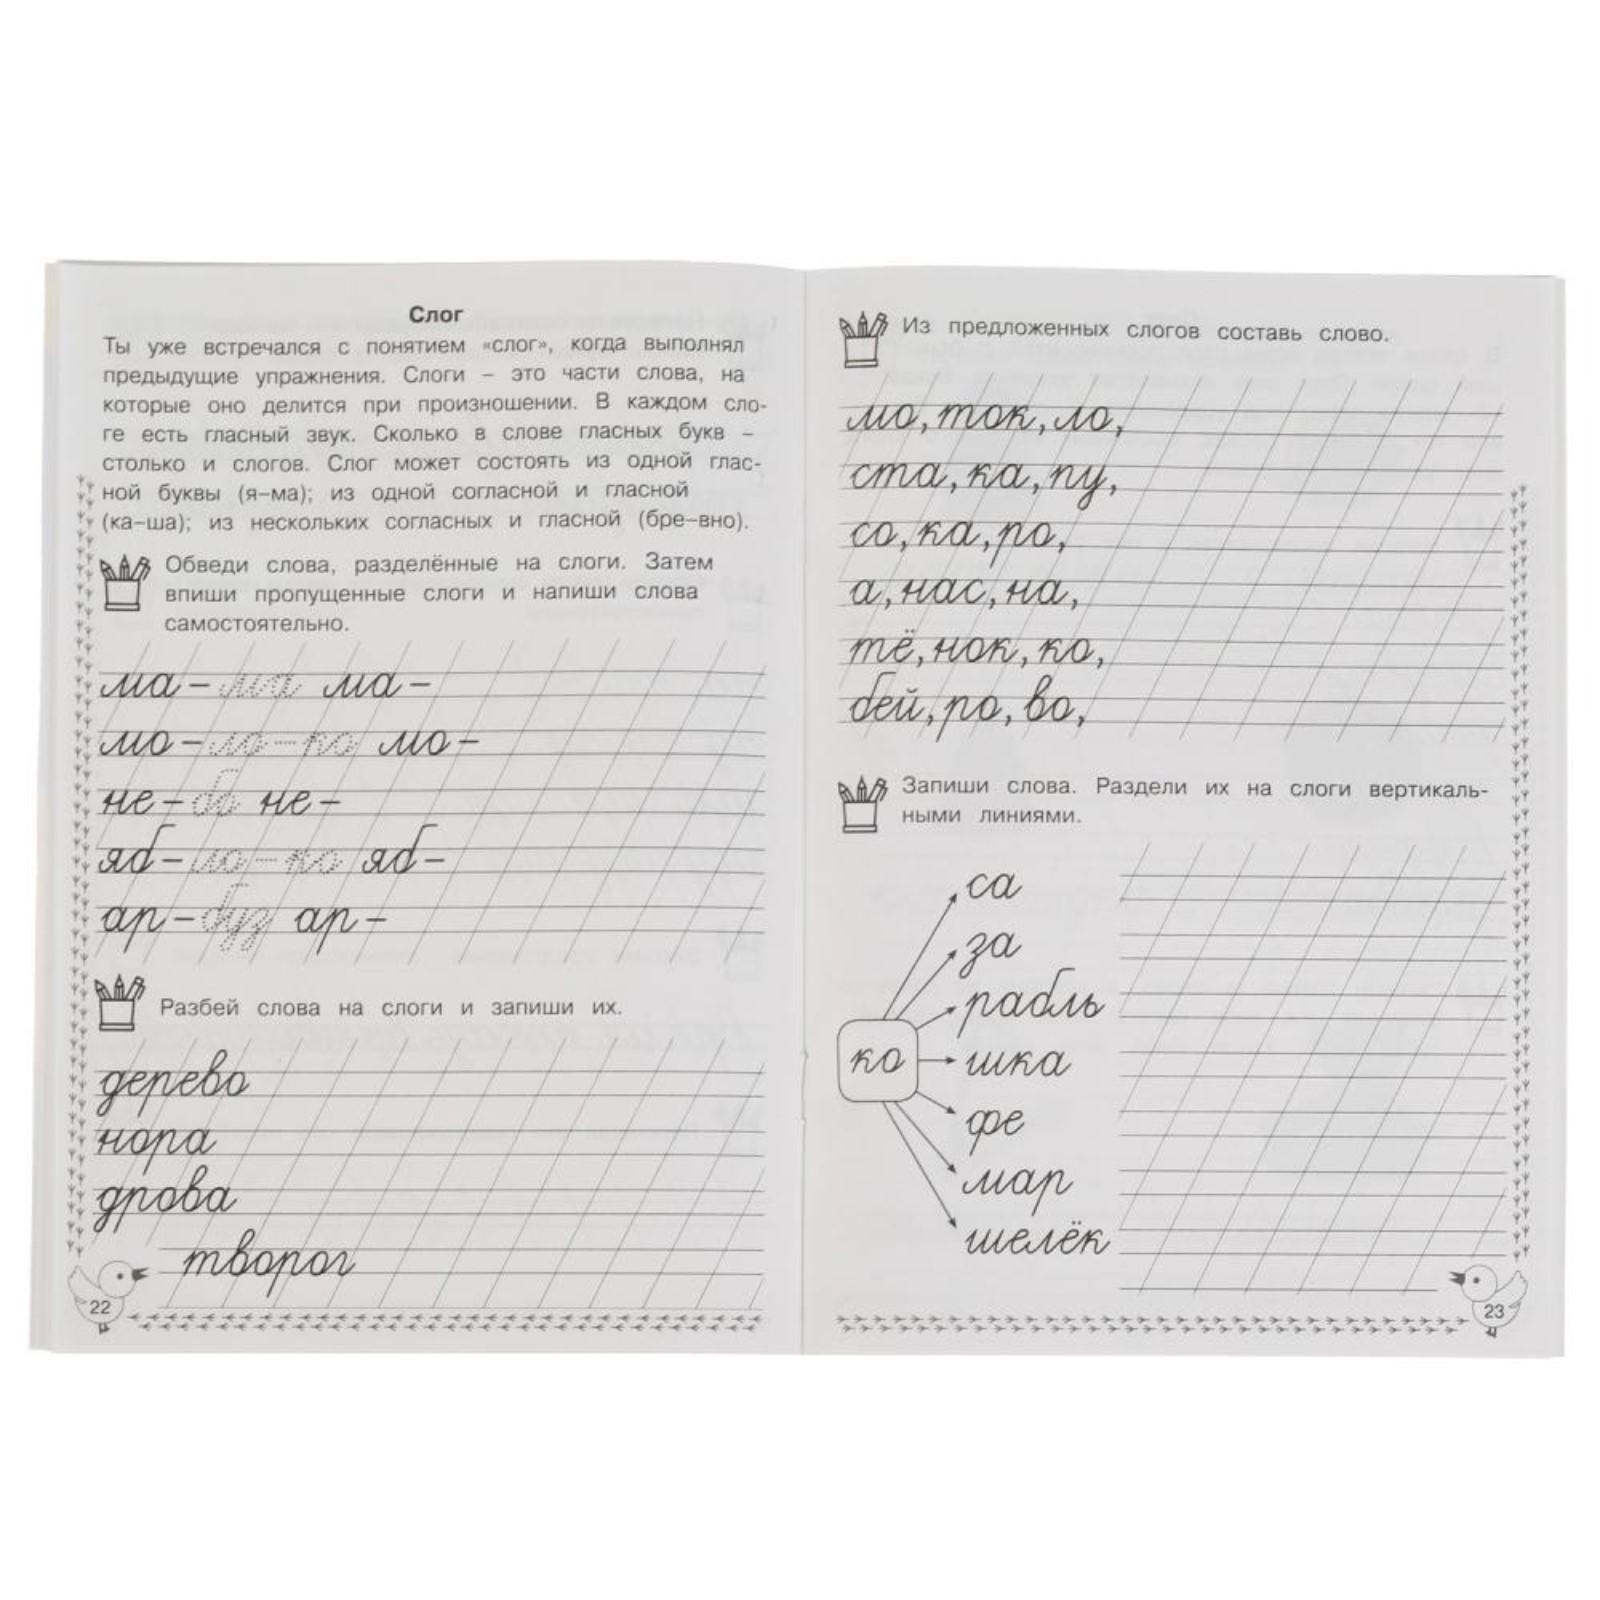 Слог
Ты уже встречался с понятием «слог», когда выполнял
предыдущие упражнения. Слоги – это части слова, на
которые оно делится при произношении. В каждом сло-
ге есть гласный звук. Сколько в слове гласных букв –
столько и слогов. Слог может состоять из одной глас-
ной буквы (я–ма); из одной согласной и гласной
(ка–ша); из нескольких согласных и гласной (бре–вно).
Обведи слова, разделённые на слоги. Затем
впиши пропущенные слоги и напиши слова
самостоятельно.
ма – ма ма –
мо – ло – ко мо –
не – бо не –
яб – ло – ко яб –
ар – буз ар –
Разбей слова на слоги и запиши их.
дерево
нора
дрова
творог
22
Из предложенных слогов составь слово.
мо, ток, ло,
ста, ка, пу,
со, ка, ро,
а, нас, на,
тё, нок, ко,
бей, ро, во,
Запиши слова. Раздели их на слоги вертикаль-
ными линиями.
са
за
рабль
ко шка
фе
мар
шелёк
23